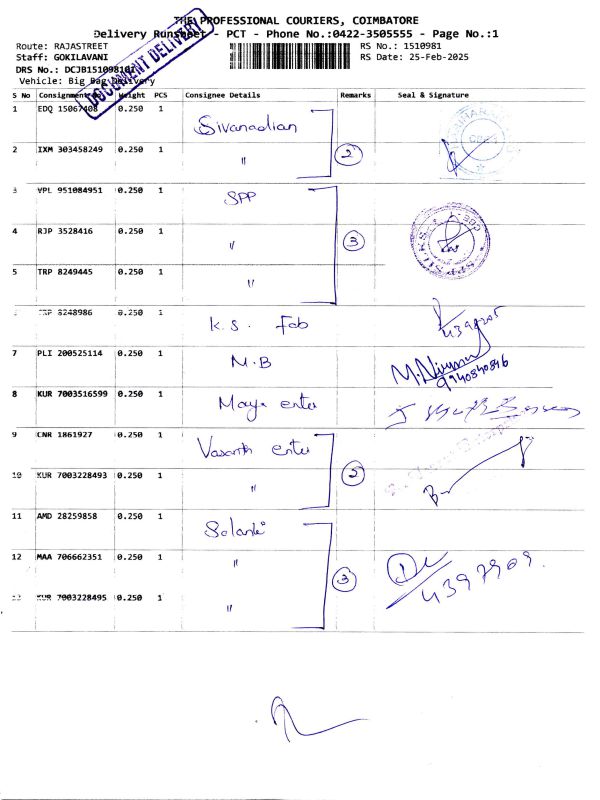 THE PROFESSIONAL COURIERS, COIMBATORE
Delivery Runsheet - PCT - Phone No.:0422-3505555 - Page No.:1
DOCUMENT DELIVERY
Route: RAJASTREET
RS No.: 1510981
Staff: GOKILAVANI
RS Date: 25-Feb-2025
DRS No.:
Vehicle: Big Bag Delivery
S No Consignment Weight PCS Consignee Details Remarks Seal & Signature
1 EDQ 15067408 0.250 1 Sivanadian
2 IXM 303458249 0.250 1 " 2
3 VPL 951084951 0.250 1 SPP
4 RJP 3528416 0.250 1 " 3
5 TRP 8249445 0.250 1 "
8248986 0.250 1 K.S. Fab
7 PLI 200525114 0.250 1 M.B
9940840846
8 KUR 7003516599 0.250 1 Maya enter
9 CNR 1861927 0.250 1 Vasanth enter
10 KUR 7003228493 0.250 1 " 2
11 AMD 28259858 0.250 1
12 MAA 706662351 0.250 1 " 3
4397909
13 KUR 7003228495 0.250 1 "